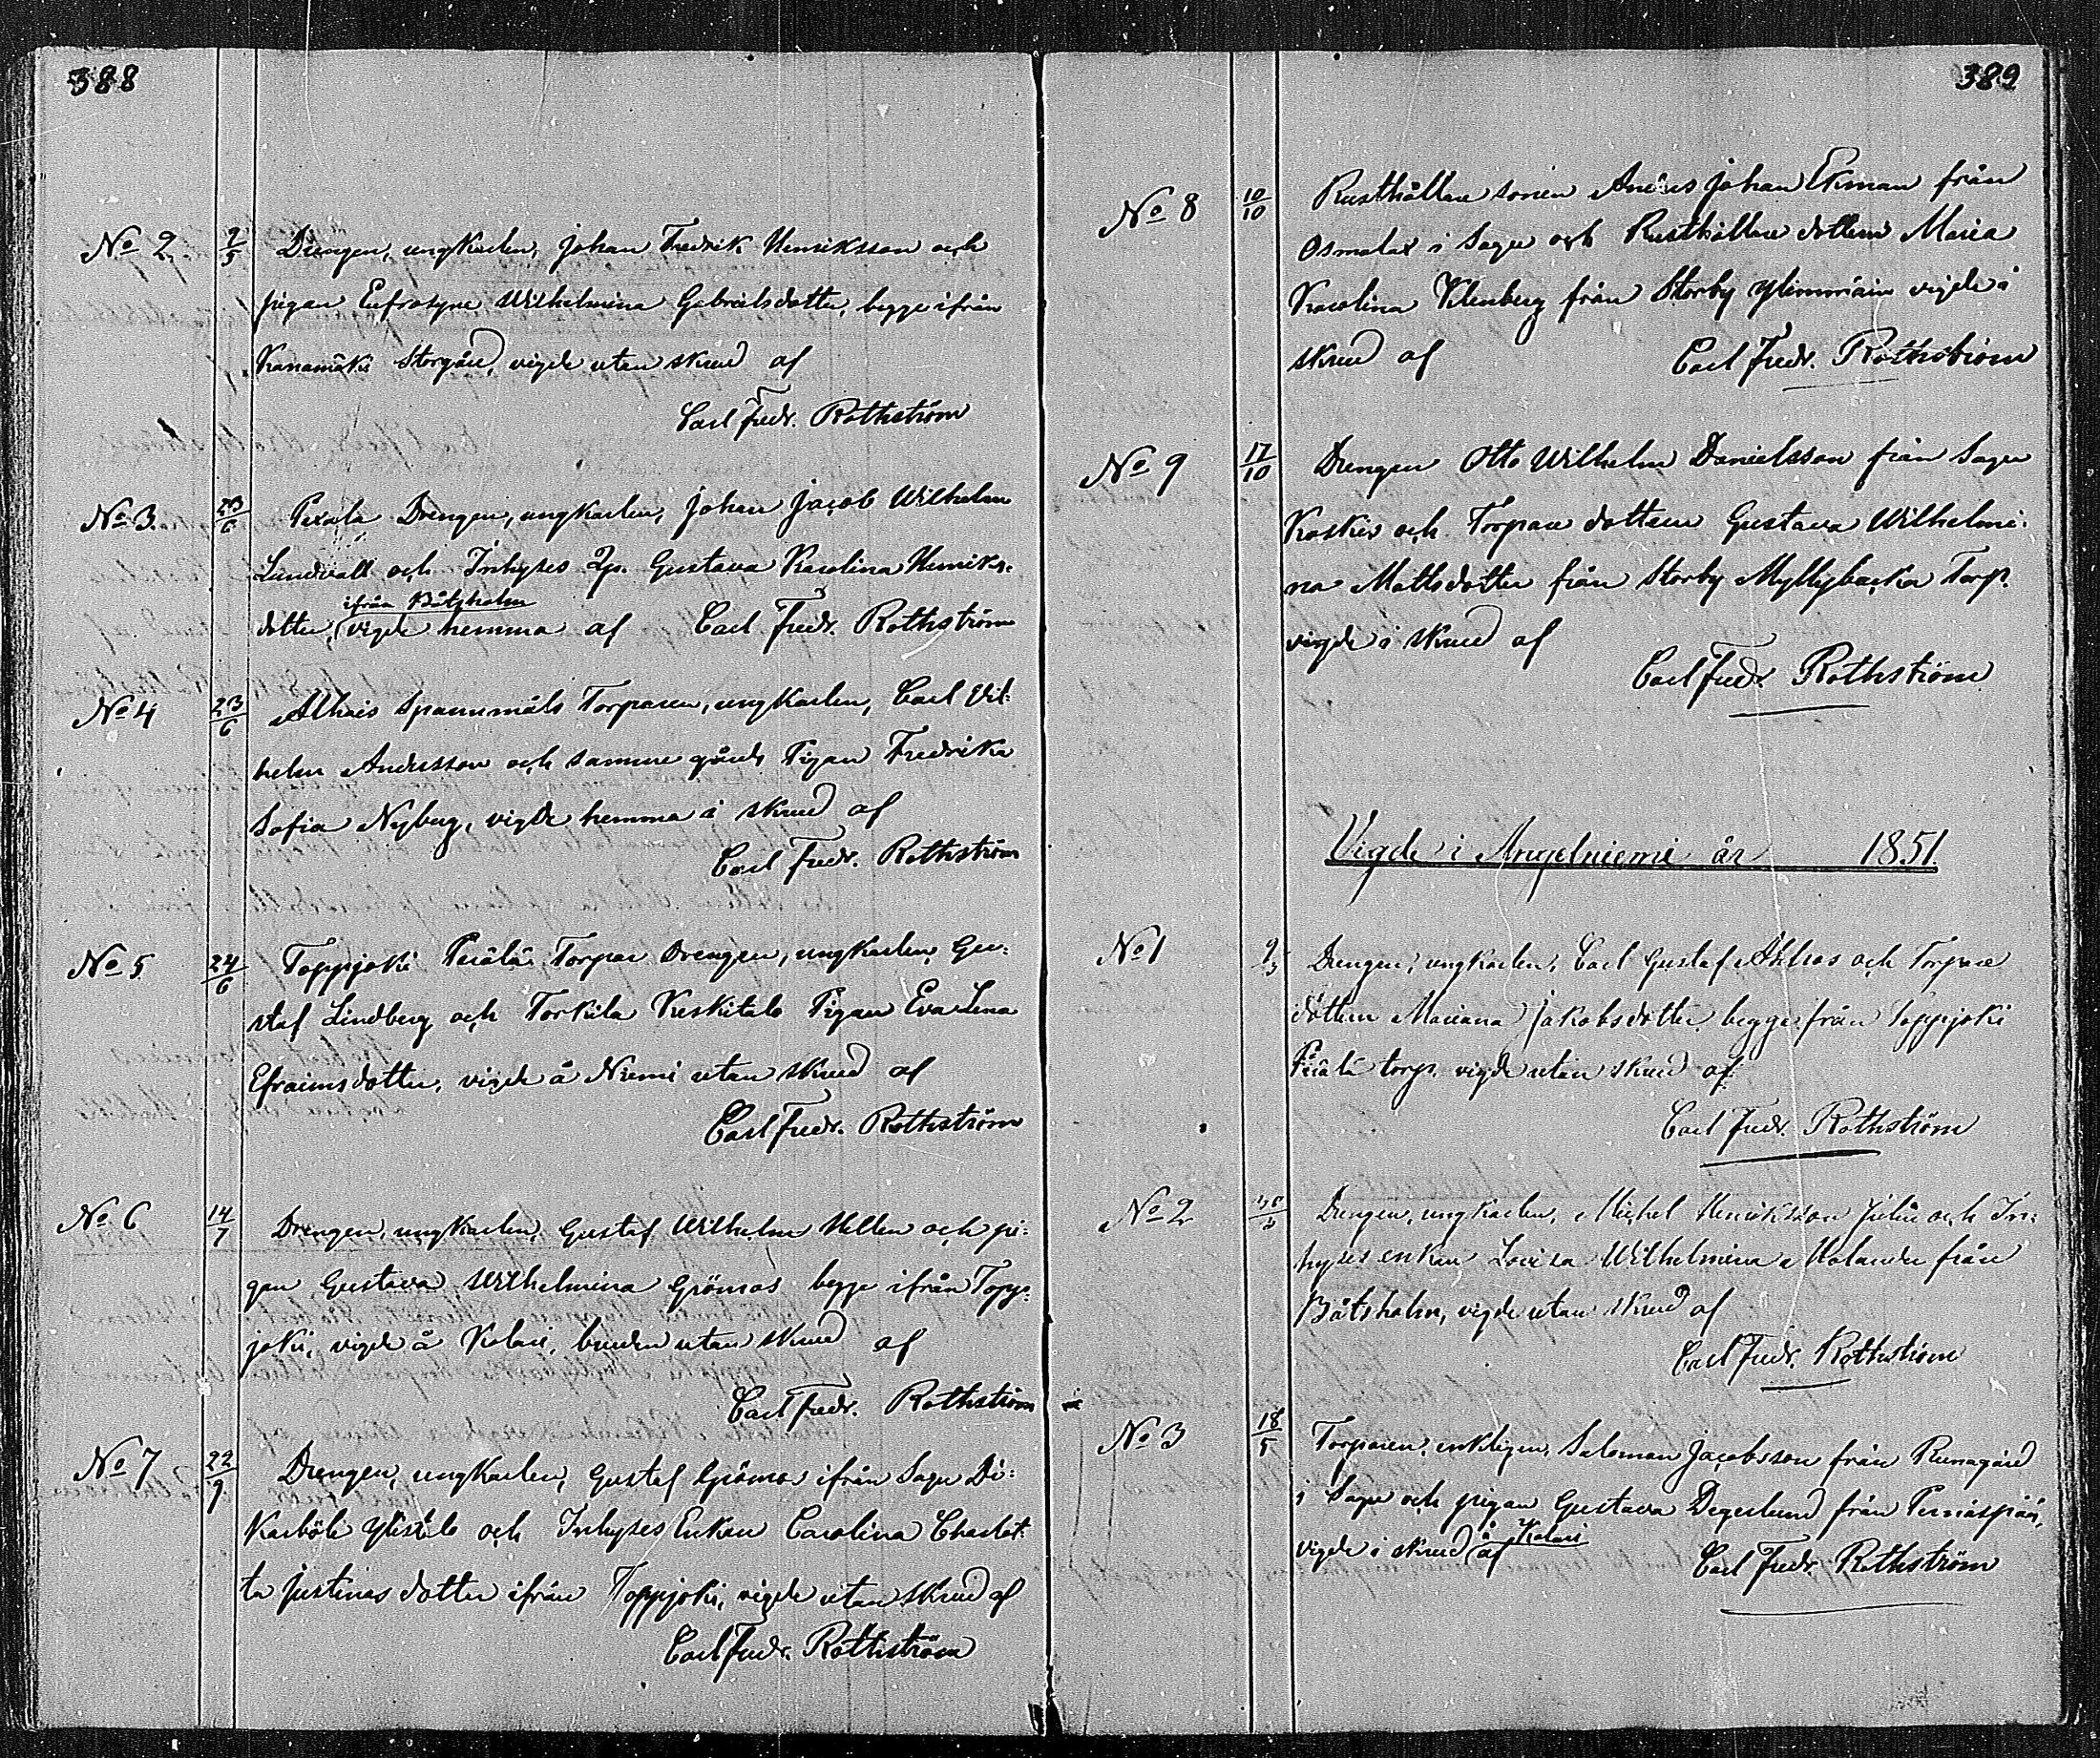 388
No 2. 2/5 Drengen, ungkarlen, Johan Fredrik Henriksson och
pigan Eufrosyne Wilhelmina Gabrielsdotter, begge ifrån
Kanamäki Storgård, vigde utan skrud af
Carl Fredr. Rothström
No 3. 23/6 Pexala Drengen, ungkarlen, Johan Jacob Wilhelm
Lundvall och Inhyses Qp. Gustava Karolina Henriks-
ifrån Båtsholm
dotter, vigde hemma af Carl Fredr. Rothström
No 4 23/6 Spannmåls Torparen, ungkarlen, Carl Vil-
helm Andersson och samme gårds Pigan Fredrika
Sofia Nyberg, vigde hemma i skrud af
Carl Fredr. Rothström
No 5 24/6 Toppjoki Perälä Torpar Drengen, ungkarlen, Gu-
staf Lindberg och Torkila Keskitalo Pigan Eva Lena
Efraimsdotter, vigde å Niemi utan skrud af
Carl Fredr. Rothström
No 6 14/7 Drengen, ungkarlen, Gustaf Wilhelm Hellen och pi-
gan Gustava Wilhelmina Grönroos begge ifrån Topp-
joki, vigde å Kolari, bruden utan skrud af
Carl Fredr. Rothström
No 7 22/9 Drengen, ungkarlen, Gustaf Grönroos ifrån Sagu Di-
karböle Ylistalo och Inhyses Enkan Carolina Charlot-
ta Justinasdotter ifrån Toppjoki, vigde utan skrud af
Carl Fredr. Rothström
389
No 8 10/10 Rusthållare sonen Anders Johan Ekman från
Osmalax i Sagu och Rusthållare dottern Maria
Karolina Vilenberg från Storby Ylimmäin vigde i
skrud af Carl Fredr. Rothström
No 9 17/10 Drengen Otto Wilhelm Danielsson från Sagu
Koskis och Torpare dottern Gustava Wilhelmi-
na Mattsdotter från Storby Myllybacka Torp.
vigde i skrud af
Carl Fredr. Rothström
Vigde i Angelniemi år 1851.
No 1 Drengen, ungkarlen, Carl Gustaf Ahlros och Torpare
dottern Mariana Jakobsdotter, begge från Toppjoki
Perälä torp. vigde utan skrud af
Carl Fredr. Rothström
No 2 Drengen, ungkarlen, Michel Henriksson Julin och In-
hyses enkan Lovisa Wilhelmina Molander från
Båtsholm, vigde utan skrud af
Carl Fredr. Rothström
No 3 18/5 Torparen, enklingen, Salomon Jacobsson från Runagård
i Sagu och pigan Gustava Degerlund från Perniäspää,
å Kolari
vigde i skrud af Carl Fredr. Rothström